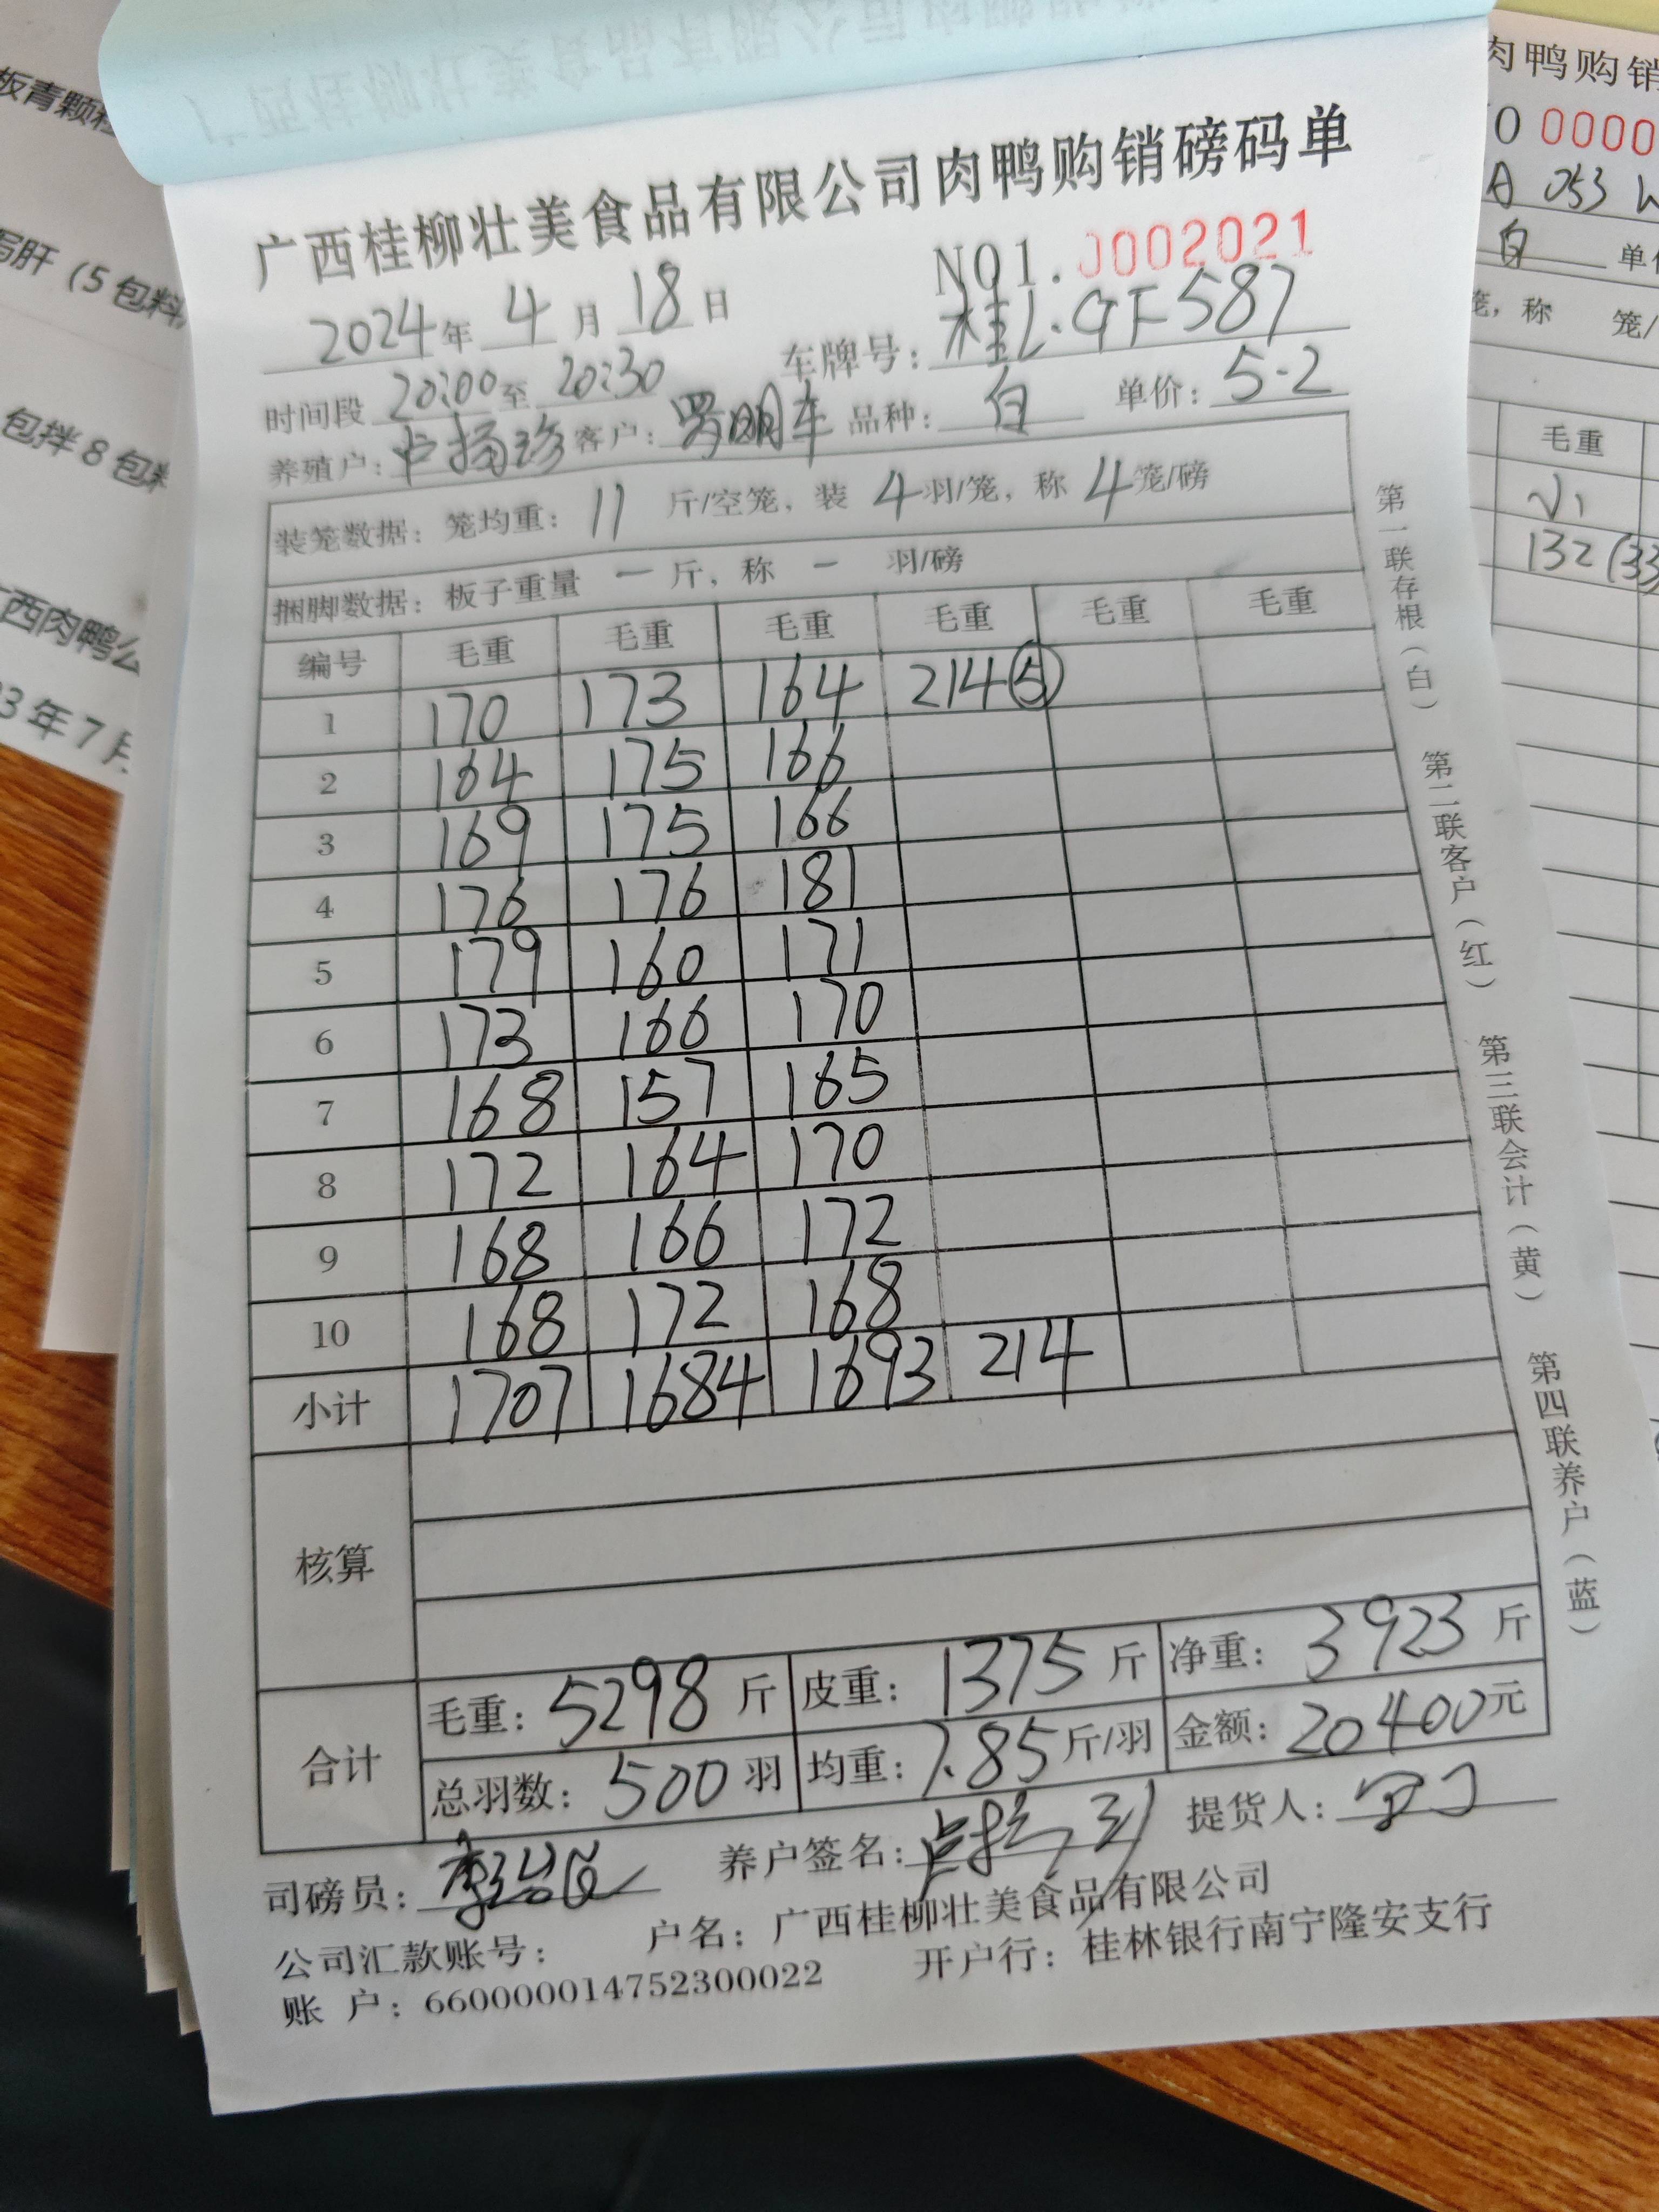 广西桂柳壮美食品有限公司肉鸭购销磅码单
NO1.0002021
2024年 4 月 18 日 车牌号：桂L·GF587
时间段 20:00 至 20:30
养殖户： 客户：罗明 品种：白 单价：5.2
装笼数据：笼均重：11 斤/空笼，装 4 羽/笼，称 4 笼/磅
捆脚数据：板子重量 一 斤，称 一 羽/磅
编号 毛重 毛重 毛重 毛重 毛重 毛重
1 170 173 164 214⑤
2 164 175 166
3 169 175 166
4 176 176 181
5 179 160 171
6 173 166 170
7 168 157 165
8 172 164 170
9 168 166 172
10 168 172 168
小计 1707 1684 1693 214
核算
合计
毛重：5298 斤 皮重：1375 斤 净重：3923 斤
总羽数：500 羽 均重：7.85 斤/羽 金额：20400 元
司磅员： 养户签名： 提货人：
公司汇款账号： 户名：广西桂柳壮美食品有限公司
账 户：660000014752300022 开户行：桂林银行南宁隆安支行
第一联存根（白） 第二联客户（红） 第三联会计（黄） 第四联养户（蓝）
板青颗粒
肝（5 包料
包拌 8 包料
西肉鸭公
3 年 7 月
肉鸭购销
O 0000
A 053
白 单价
笼，称 笼/
毛重
132 (33